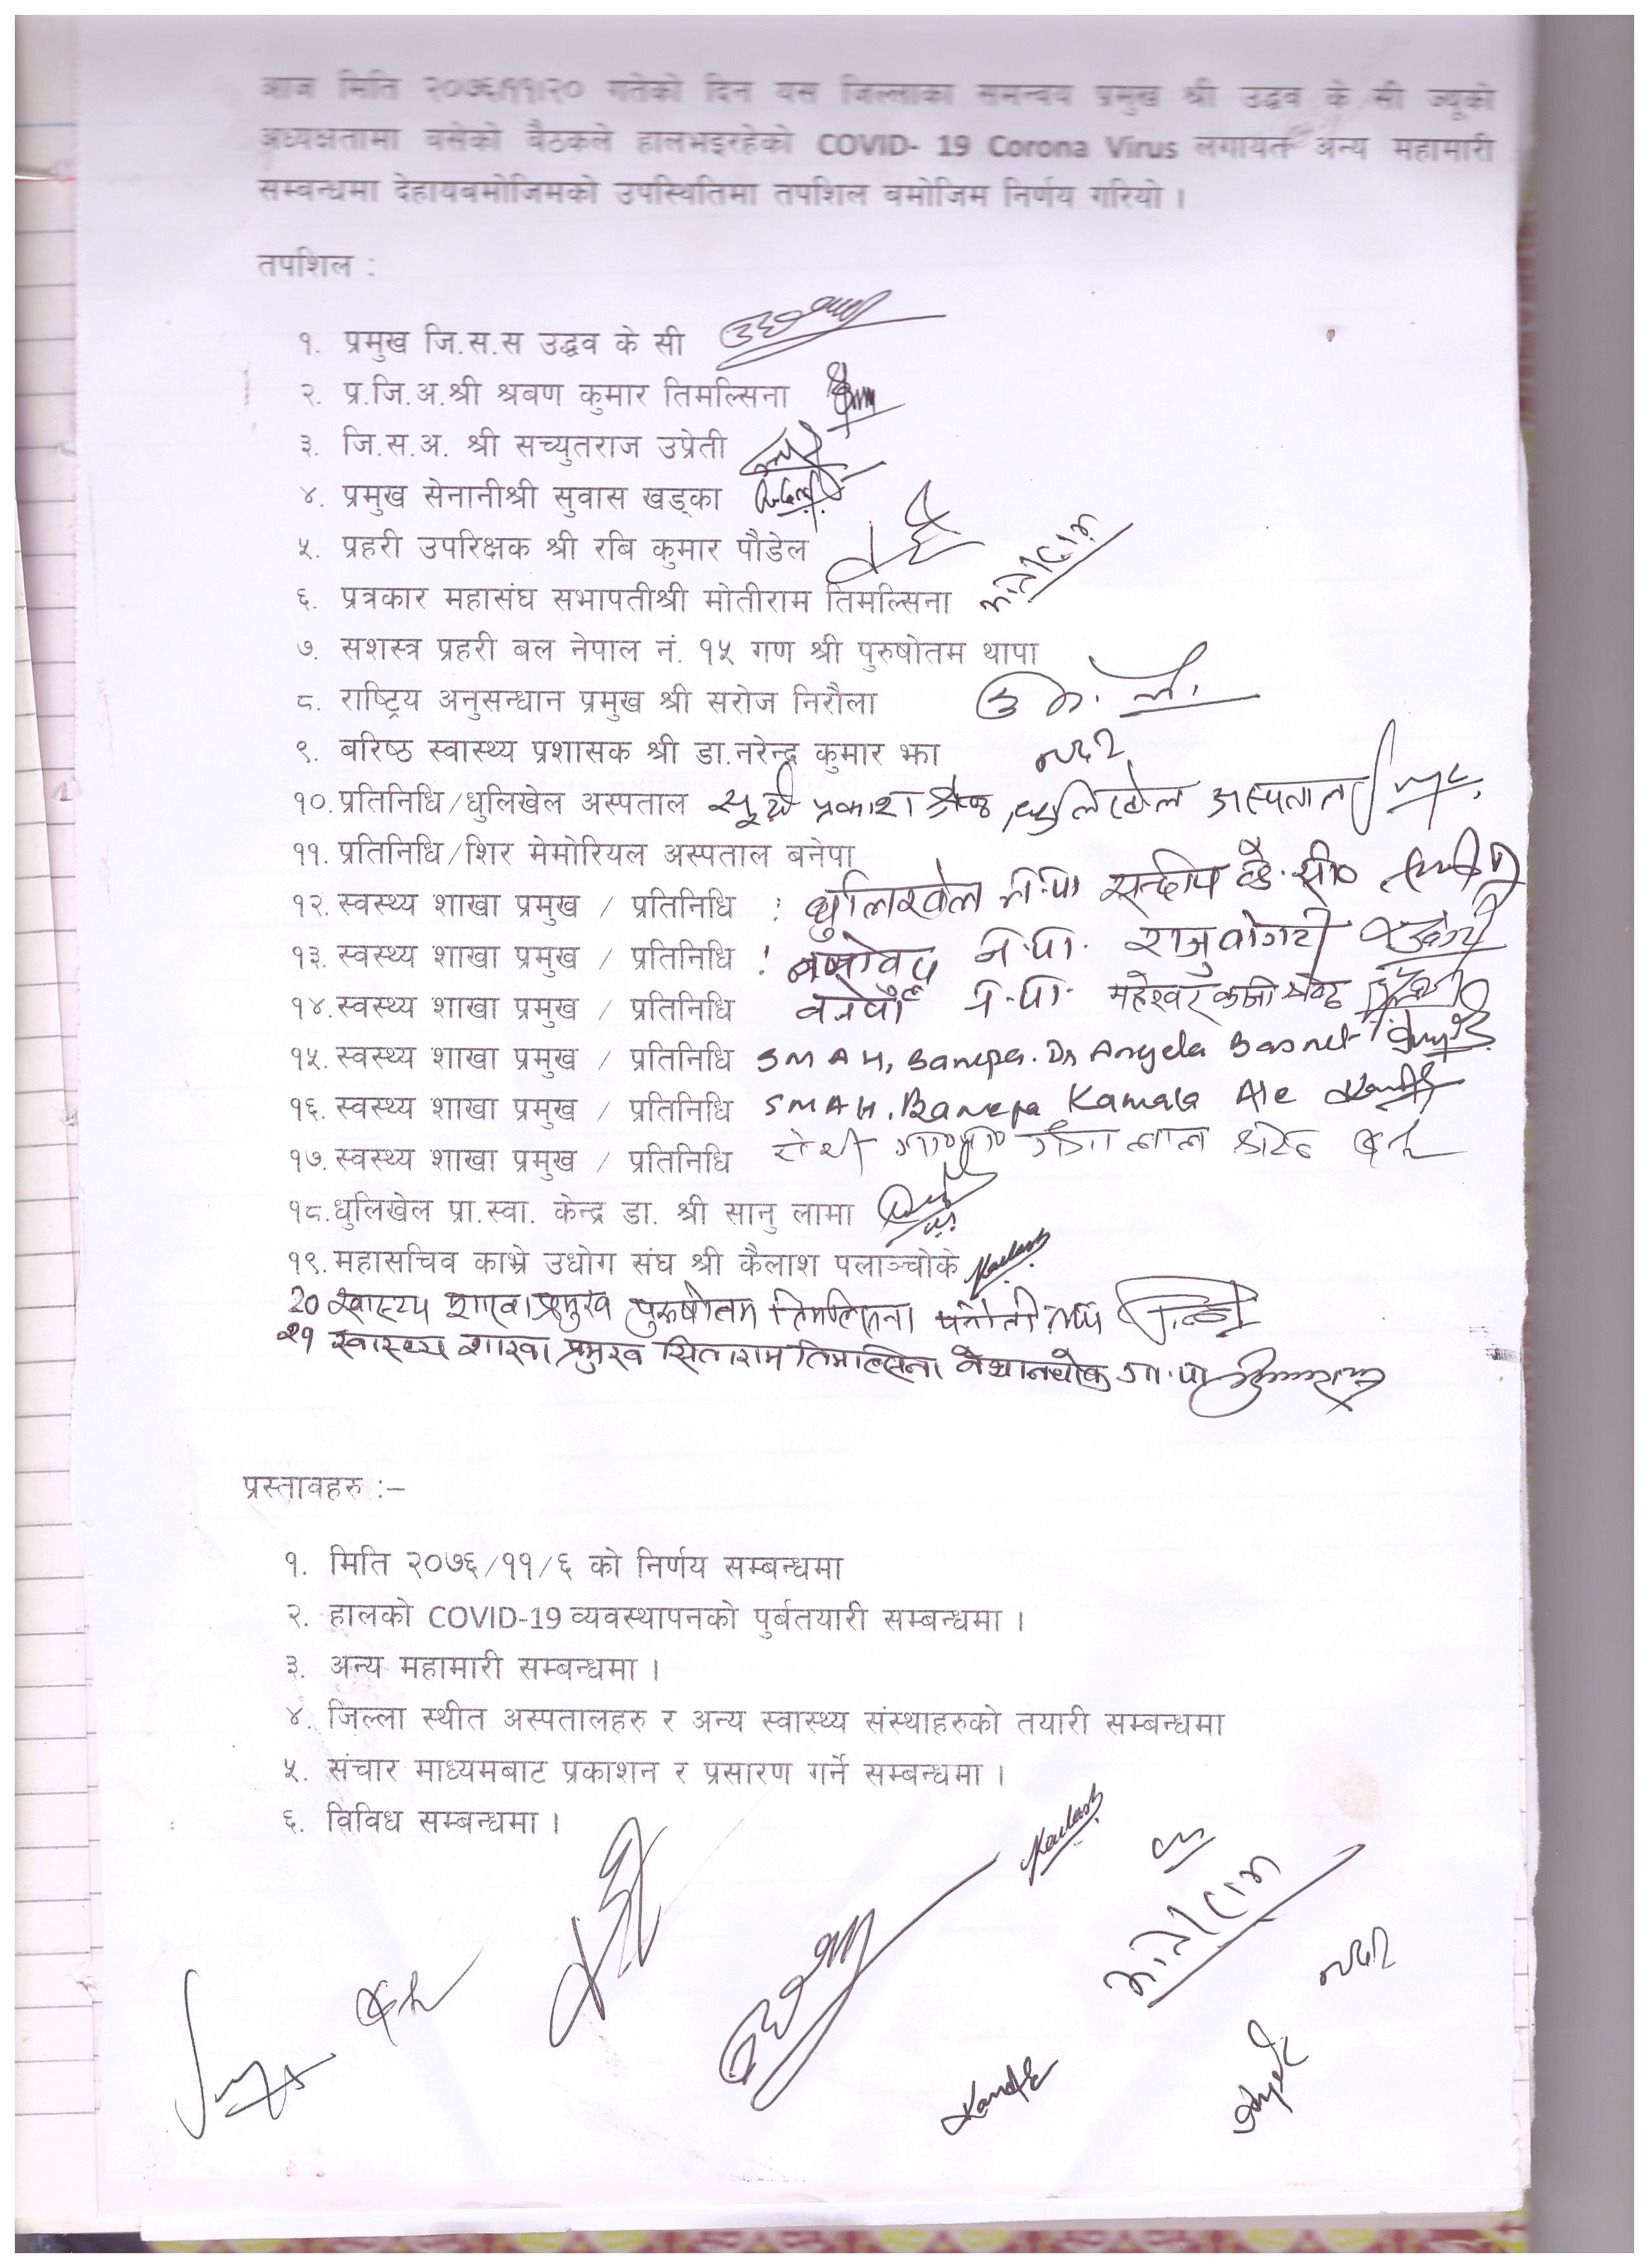 आज मिति २०७६।११।२० गतेको दिन यस जिल्लाका समन्वय प्रमुख श्री उद्धव के सी ज्यूको
अध्यक्षतामा बसेको बैठकले हालभइरहेको COVID- 19 Corona Virus लगायत अन्य महामारी
सम्बन्धमा देहायबमोजिमको उपस्थितिमा तपशिल बमोजिम निर्णय गरियो ।
तपशिल :
१. प्रमुख जि.स.स उद्धव के सी
२. प्र.जि.अ.श्री श्रबण कुमार तिमल्सिना
३. जि.स.अ. श्री सच्युतराज उप्रेती
४. प्रमुख सेनानीश्री सुवास खड्का
५. प्रहरी उपरिक्षक श्री रबि कुमार पौडेल
६. प्रत्रकार महासंघ सभापतीश्री मोतीराम तिमल्सिना मोतीराम
७. सशस्त्र प्रहरी बल नेपाल नं. १५ गण श्री पुरुषोतम थापा
८. राष्ट्रिय अनुसन्धान प्रमुख श्री सरोज निरौला
९. बरिष्ठ स्वास्थ्य प्रशासक श्री डा.नरेन्द्र कुमार झा
१०. प्रतिनिधि/धुलिखेल अस्पताल सूर्य प्रकाश श्रेष्ठ, धुलिखेल अस्पताल
११. प्रतिनिधि/शिर मेमोरियल अस्पताल बनेपा
१२. स्वस्थ्य शाखा प्रमुख / प्रतिनिधि : धुलिखेल न.पा सन्दीप के. सी०
१३. स्वस्थ्य शाखा प्रमुख / प्रतिनिधि : न.पा. राजु
१४. स्वस्थ्य शाखा प्रमुख / प्रतिनिधि बनेपा न.पा. महेश्वर
१५. स्वस्थ्य शाखा प्रमुख / प्रतिनिधि SMAH, Banepa. Dr Angela Basnet
१६. स्वस्थ्य शाखा प्रमुख / प्रतिनिधि SMAH, Banepa Kamala Ale
१७. स्वस्थ्य शाखा प्रमुख / प्रतिनिधि
१८. धुलिखेल प्रा.स्वा. केन्द्र डा. श्री सानु लामा
१९. महासचिव काभ्रे उधोग संघ श्री कैलाश पलाञ्चोके Kailash
२० स्वास्थ्य शाखा प्रमुख पुरुषोतम तिमल्सिना पनौती न.पा
२१ स्वास्थ्य शाखा प्रमुख सिताराम तिमल्सिना गा.पा
प्रस्तावहरु :–
१. मिति २०७६/११/६ को निर्णय सम्बन्धमा
२. हालको COVID-19 व्यवस्थापनको पुर्बतयारी सम्बन्धमा ।
३. अन्य महामारी सम्बन्धमा ।
४. जिल्ला स्थीत अस्पतालहरु र अन्य स्वास्थ्य संस्थाहरुको तयारी सम्बन्धमा
५. संचार माध्यमबाट प्रकाशन र प्रसारण गर्ने सम्बन्धमा ।
६. विविध सम्बन्धमा ।
Kailash
मोतीराम